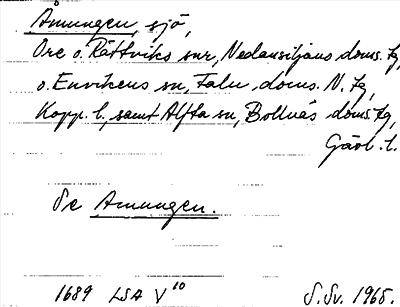 Åmungen, sjö,
Ore o. Rättviks snr, Nedansiljans doms. tg,
o. Envikens sn, Falu doms. N. tg,
Kopp. l., samt Alfta sn, Bollnäs doms. tg,
Gävl. l.
Se Amungen.
1689 LSA V¹⁰ S. Sv. 1965.